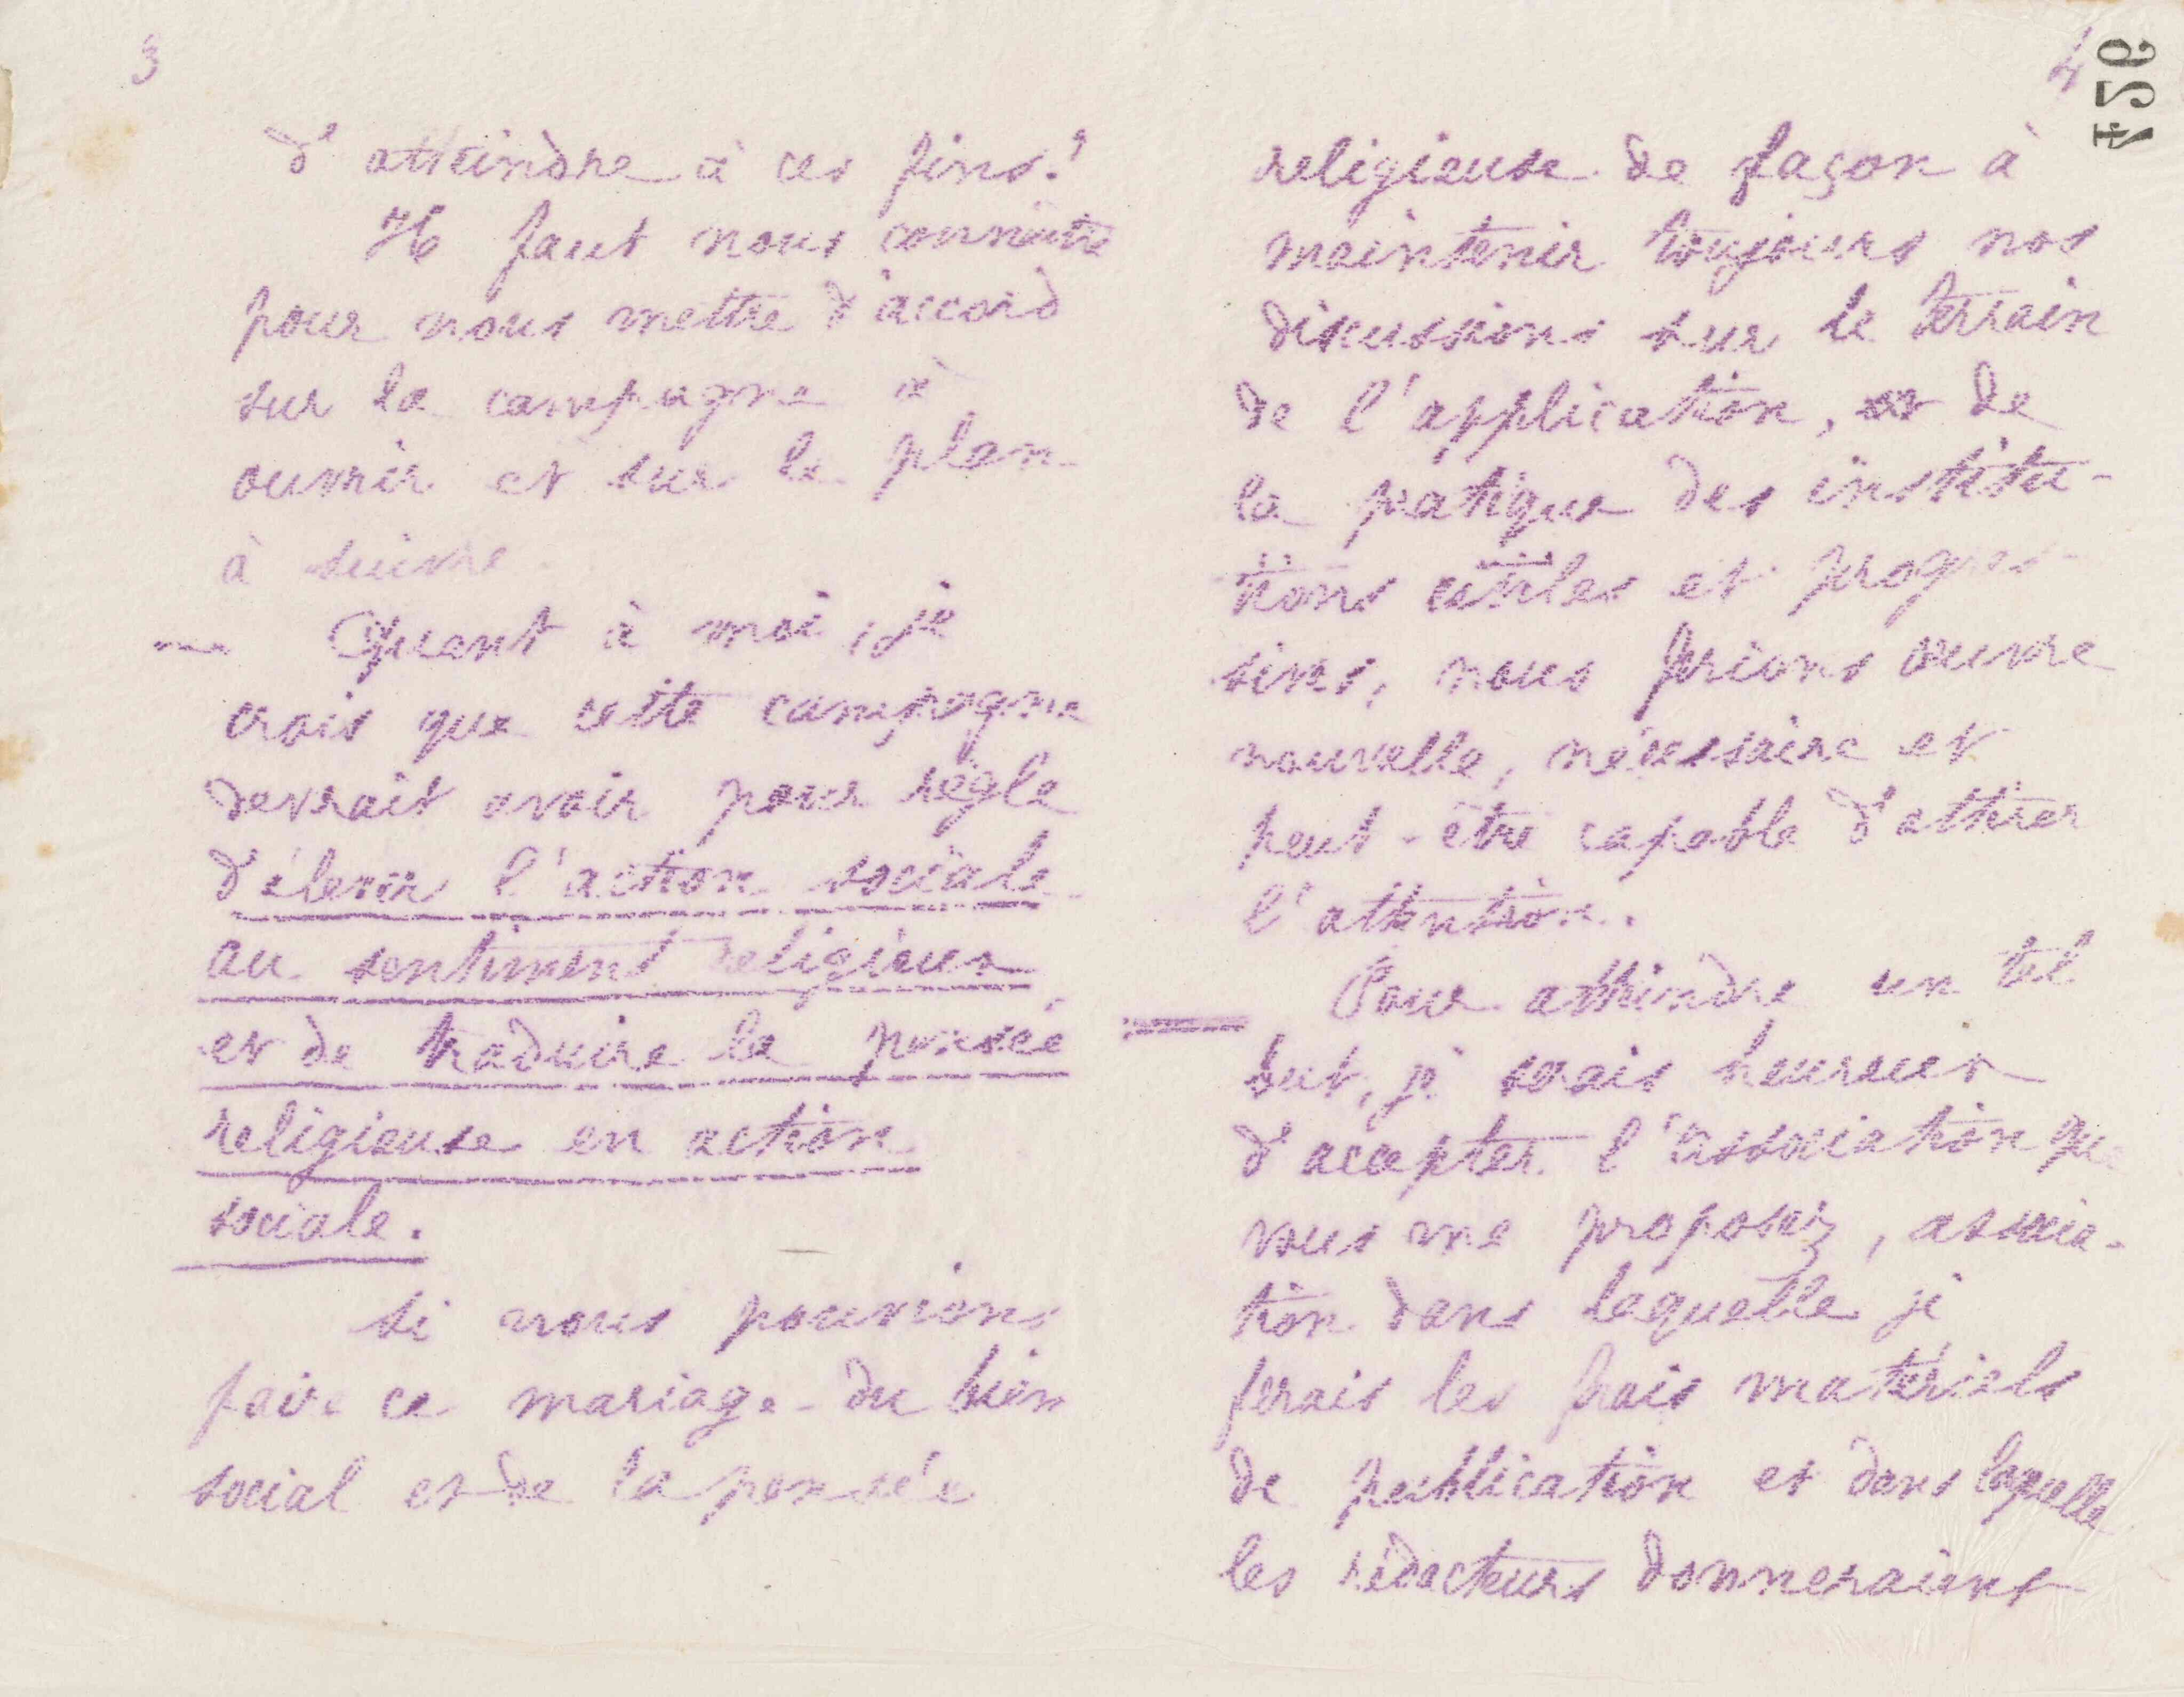 3
d'atteindre à ces fins !
Il faut nous connaître
pour nous mettre d'accord
sur la campagne à
ouvrir et sur le plan
à suivre
— Quant à moi, je
crois que cette campagne
devrait avoir pour règle
d'élever l'action sociale
au sentiment religieux
et de traduire la pensée
religieuse en action
sociale.
Si nous pouvions
faire ce mariage du bien
social et de la pensée
4
924
religieuse de façon à
maintenir toujours nos
discussions sur le terrain
de l'application, et de
la pratique des institu-
tions utiles et progres-
sives, nous ferions œuvre
nouvelle, nécessaire et
peut-être capable d'attirer
l'attention.
Pour atteindre un tel
but, je serais heureux
d'accepter l'association que
vous me proposez, associa-
tion dans laquelle je
ferais les frais matériels
de publication et dans laquelle
les rédacteurs donneraient